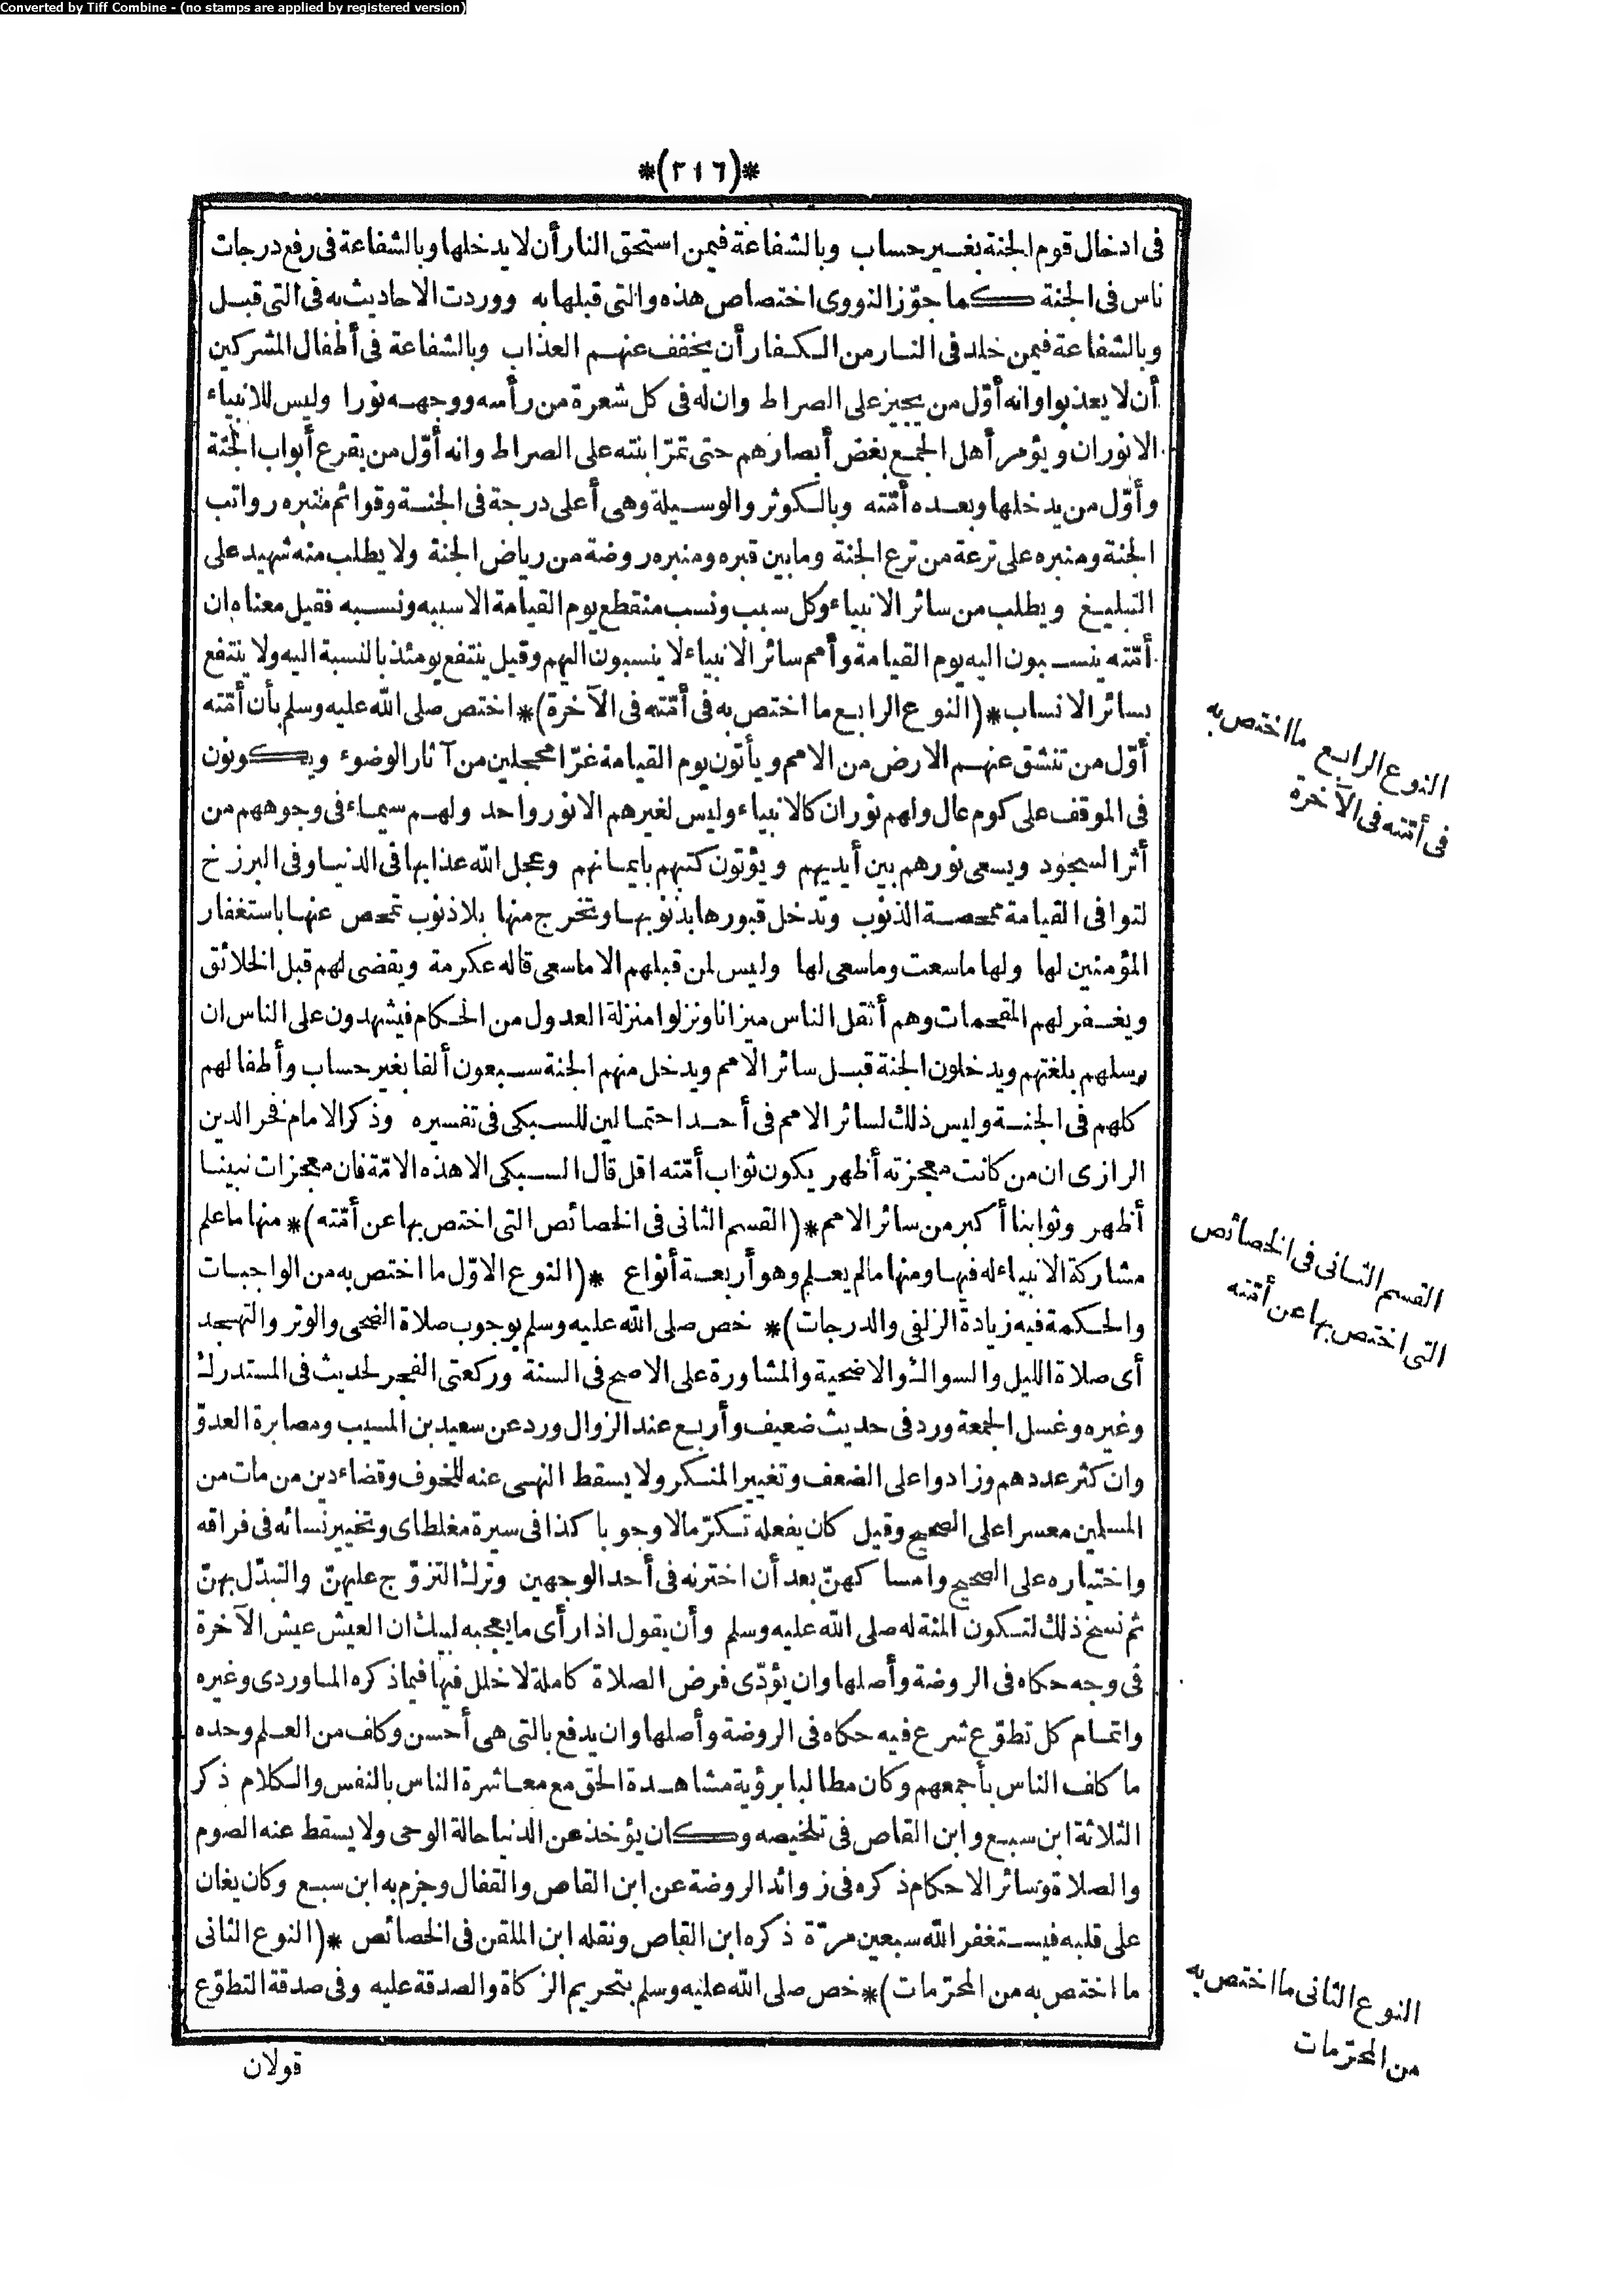 Converted by Tiff Combine - (no stamps are applied by registered version)
*(٢١٦)*
فى ادخال قوم الجنة بغير حساب وبالشفاعة فيمن استحق النار أن لا يدخلها وبالشفاعة فى رفع درجات
ناس فى الجنة كما جوّز النووى اختصاص هذه والتى قبلها به ووردت الاحاديث به فى التى قبل
وبالشفاعة فيمن خلد فى النار من الكفار أن يخفف عنهم العذاب وبالشفاعة فى أطفال المشركين
أن لا يعذبوا وانه أوّل من يجيز على الصراط وان له فى كل شعرة من رأسه ووجهه نورا وليس للانبياء
الا نوران ويؤمر أهل الجمع بغض أبصارهم حتى تمرّ ابنته على الصراط وانه أوّل من يقرع أبواب الجنة
وأوّل من يدخلها وبعده أمّته وبالكوثر والوسيلة وهى أعلى درجة فى الجنة وقوائم منبره رواتب
الجنة ومنبره على ترعة من ترع الجنة وما بين قبره ومنبره روضة من رياض الجنة ولا يطلب منه شهيد على
التبليغ ويطلب من سائر الانبياء وكل سبب ونسب منقطع يوم القيامة الا سببه ونسبه فقيل معناه ان
أمّته ينسبون اليه يوم القيامة وأمم سائر الانبياء لا ينسبون اليهم وقيل ينتفع يومئذ بالنسبة اليه ولا ينتفع
بسائر الانساب *(النوع الرابع ما اختص به فى أمّته فى الآخرة)* اختص صلى الله عليه وسلم بأن أمّته
أوّل من تنشق عنهم الارض من الامم ويأتون يوم القيامة غرّا محجلين من آثار الوضوء ويكونون
فى الموقف على كوم عال ولهم نوران كالانبياء وليس لغيرهم الا نور واحد ولهم سيماء فى وجوههم من
أثر السجود ويسعى نورهم بين أيديهم ويؤتون كتبهم بايمانهم وعجل الله عذابها فى الدنيا وفى البرزخ
لتوافى القيامة ممحصة الذنوب وتدخل قبورها بذنوبها وتخرج منها بلا ذنوب تمحص عنها باستغفار
المؤمنين لها ولها ما سعت وما سعى لها وليس لمن قبلهم الا ما سعى قاله عكرمة ويقضى لهم قبل الخلائق
ويغفر لهم المقحمات وهم أثقل الناس ميزانا ونزلوا منزلة العدول من الحكام فيشهدون على الناس ان
رسلهم بلغتهم ويدخلون الجنة قبل سائر الامم ويدخل منهم الجنة سبعون ألفا بغير حساب وأطفالهم
كلهم فى الجنة وليس ذلك لسائر الامم فى أحد احتمالين للسبكى فى تفسيره وذكر الامام فخر الدين
الرازى ان من كانت معجزته أظهر يكون ثواب أمّته اقل قال السبكى الا هذه الامّة فان معجزات نبينا
أظهر وثوابنا أكبر من سائر الامم *(القسم الثانى فى الخصائص التى اختص بها عن أمّته)* منها ما علم
مشاركة الانبياء له فيها ومنها ما لم يعلم وهو أربعة أنواع *(النوع الاوّل ما اختص به من الواجبات
والحكمة فيه زيادة الزلفى والدرجات)* خص صلى الله عليه وسلم بوجوب صلاة الضحى والوتر والتهجد
أى صلاة الليل والسواك والاضحية والمشاورة على الاصح فى السنة وركعتى الفجر لحديث فى المستدرك
وغيره وغسل الجمعة ورد فى حديث ضعيف وأربع عند الزوال ورد عن سعيد بن المسيب ومصابرة العدوّ
وان كثر عددهم وزادوا على الضعف وتغيير المنكر ولا يسقط النهى عنه للخوف وقضاء دين من مات من
المسلمين معسرا على الصحيح وقيل كان يفعله تكرّما لا وجوبا كذا فى سيرة مغلطاى وتخيير نسائه فى فراقه
واختياره على الصحيح وامساكهنّ بعد أن اخترنه فى أحد الوجهين وترك التزوّج عليهنّ والتبدّل بهنّ
ثم نسخ ذلك لتكون المنة له صلى الله عليه وسلم وأن يقول اذا رأى ما يعجبه لبيك ان العيش عيش الآخرة
فى وجه حكاه فى الروضة وأصلها وان يؤدّى فرض الصلاة كاملة لا خلل فيها فيما ذكره الماوردى وغيره
واتمام كل تطوّع شرع فيه حكاه فى الروضة وأصلها وان يدفع بالتى هى أحسن وكلف من العلم وحده
ما كلف الناس بأجمعهم وكان مطالبا برؤية مشاهدة الحق مع معاشرة الناس بالنفس والكلام ذكر
الثلاثة ابن سبع وابن القاص فى تلخيصه وكان يؤخذ عن الدنيا حالة الوحى ولا يسقط عنه الصوم
والصلاة وسائر الاحكام ذكره فى زوائد الروضة عن ابن القاص والقفال وجزم به ابن سبع وكان يغان
على قلبه فيستغفر الله سبعين مرّة ذكره ابن القاص ونقله ابن الملقن فى الخصائص *(النوع الثانى
ما اختص به من المحرّمات)* خص صلى الله عليه وسلم بتحريم الزكاة والصدقة عليه وفى صدقة التطوّع
قولان
النوع الرابع ما اختص به
فى أمّته فى الآخرة
القسم الثانى فى الخصائص
التى اختص بها عن أمّته
النوع الثانى ما اختص به
من المحرّمات